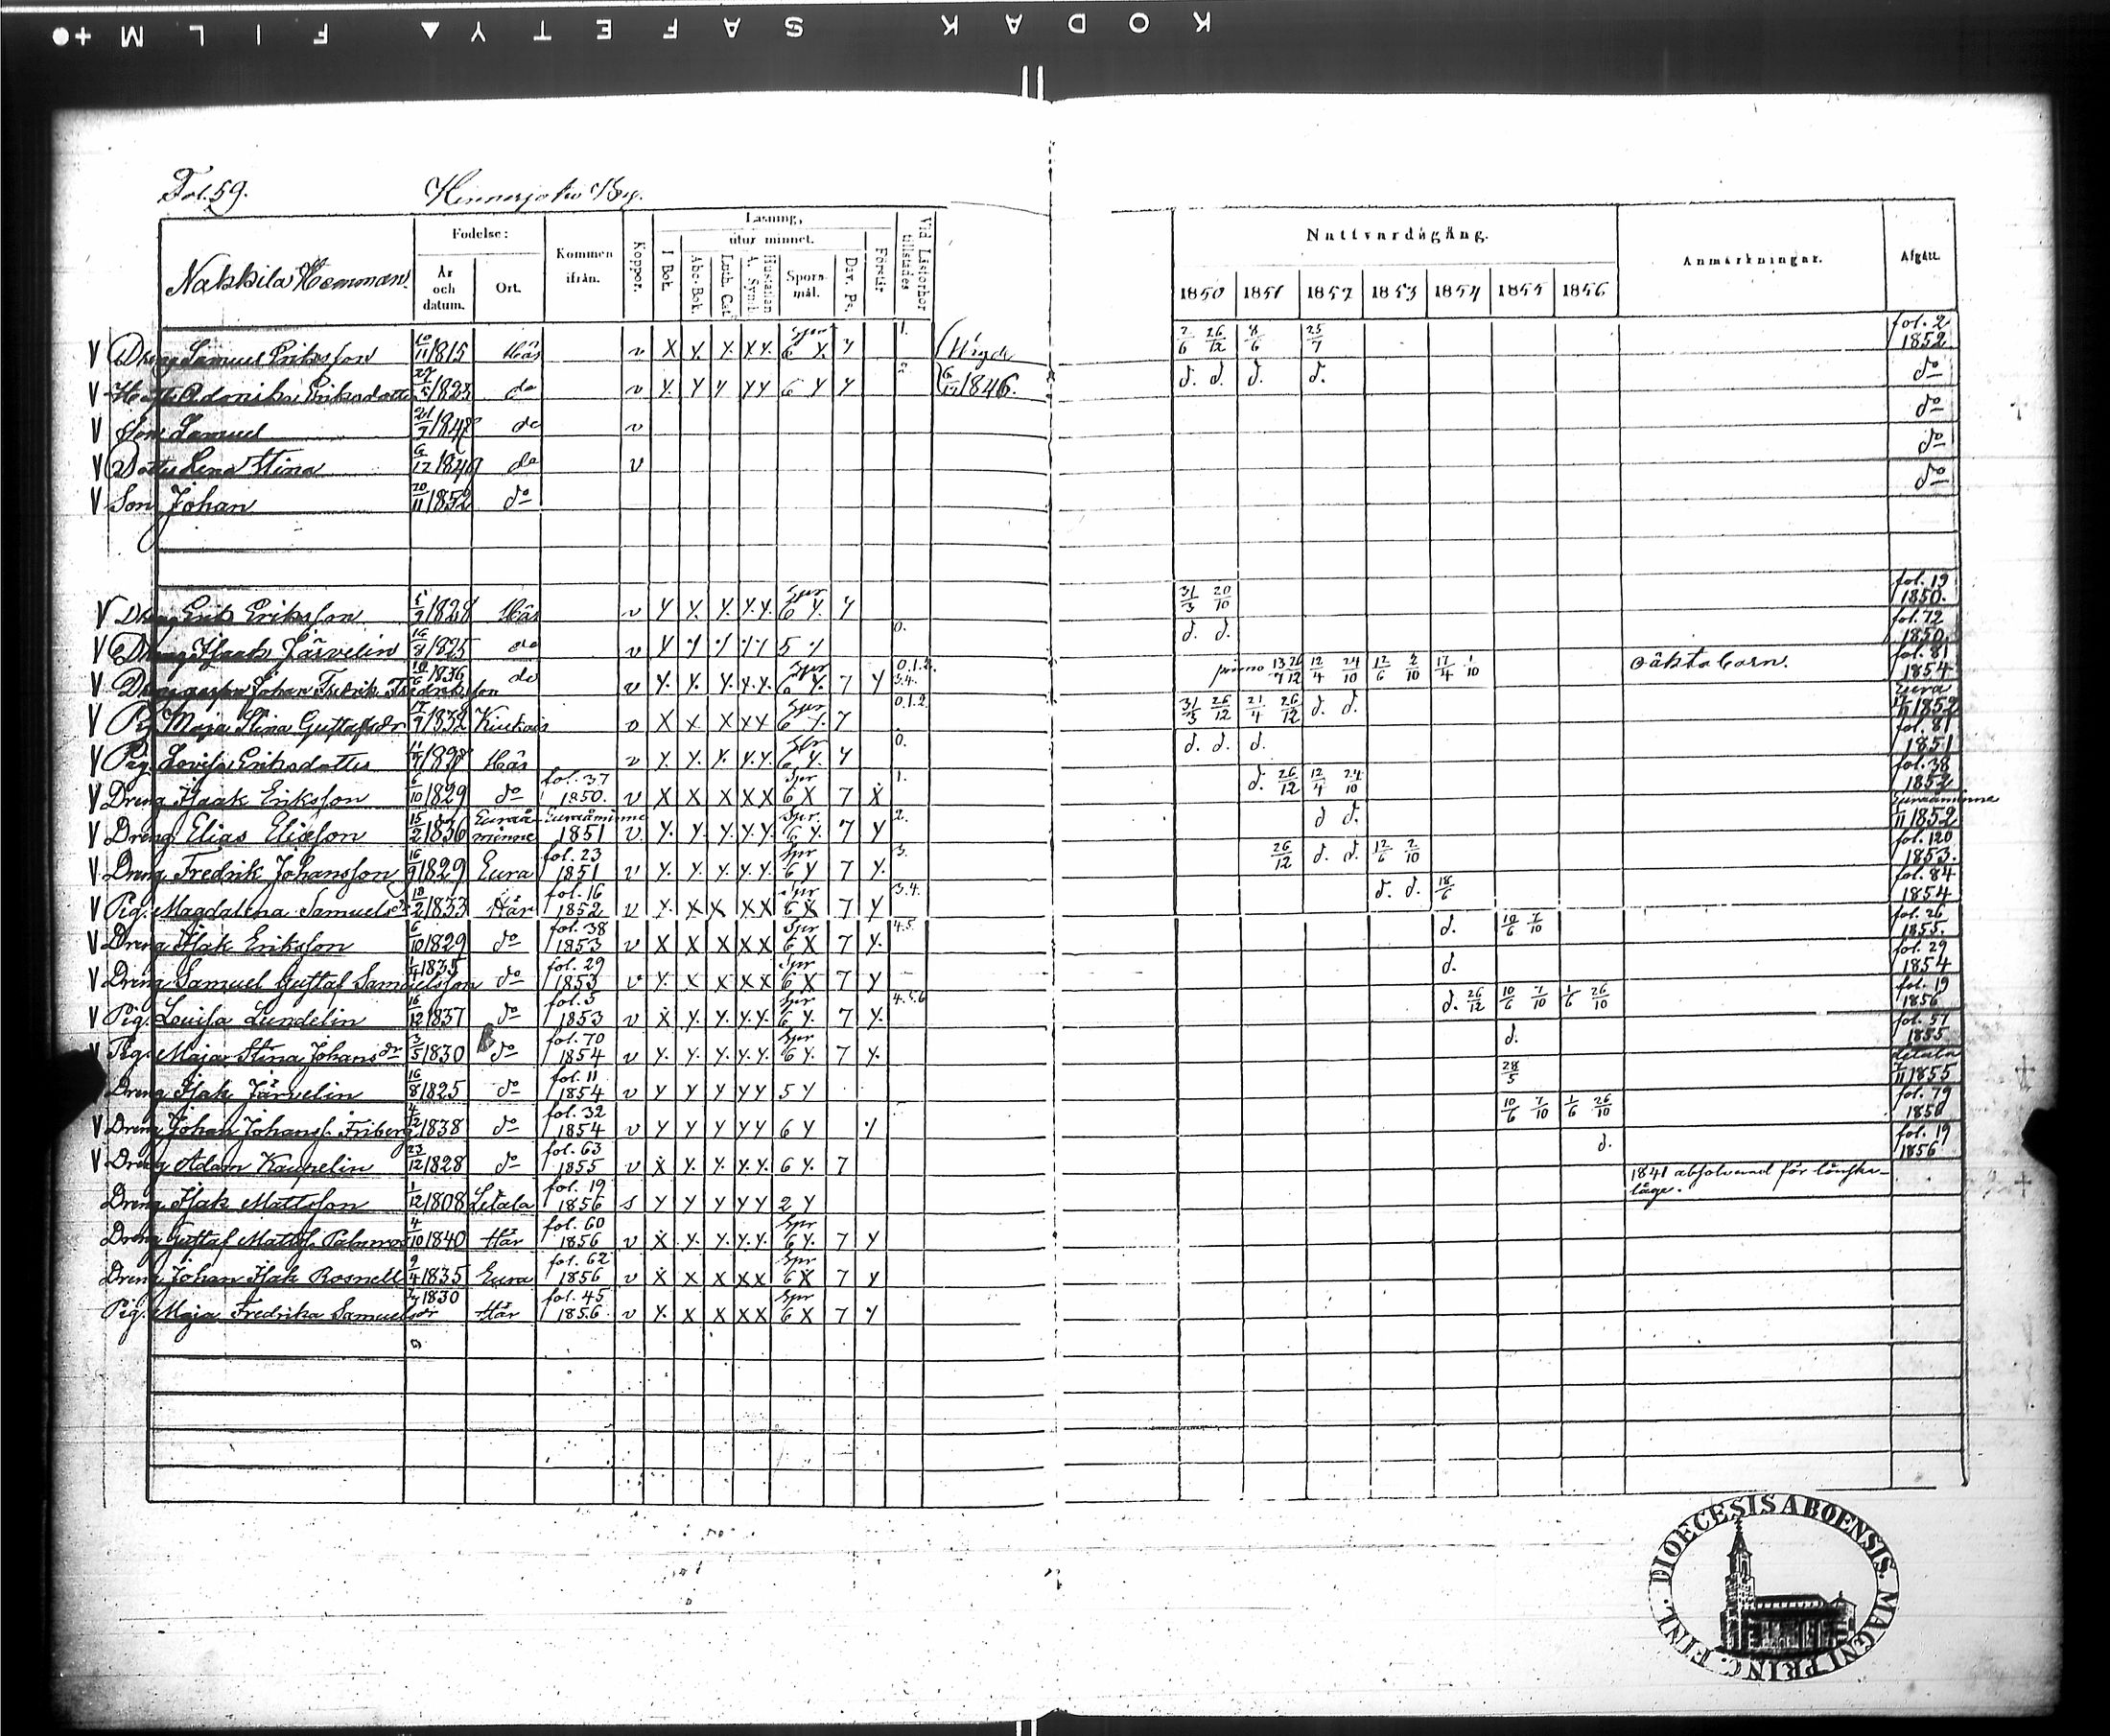 KODAK SAFETY FILM
Fol. 59. Hinnerjoki By.
Nakkila Hemman.
Födelse: År och datum. Ort. Kommen ifrån. Koppor. Läsning, utur minnet. I Bok. Abc-Bok. Luth. Cat. A. Symb. Hustaflan Spörsmål. Dav. Ps. Förstår Vid Läsförhör tillstädes Nattvardsgång. 1850 1851 1852 1853 1854 1855 1856 Anmärkningar. Afgått.
V Dreng Samuel Eriksson 10/11 1815 Här v X y. y. y.y. Spr 6 y. 7 1. Vigde 7/6 26/12 8/6 25/7 fol. 2 1852
V Eriksdotter 1823 do v y. y y y y 6 y y 6/12 1846. d. d. d. d. do
V Son Samuel 1848 do v do
V Dotter Lena Stina 6/12 1849 do v do
V Son Johan 20/11 1852 do do
V Dreng Erik Eriksson 1828 Här v y y. y. y.y. Spr 6 y. 7 31/3 20/10 fol. 19 1850.
V Dreng Isaak Järvelin 16/8 1825 do v y y y y y 5 y 0. d. d. fol. 72 1850
V Johan Fredrik Fredriksson 1836 do v y. y. y. y.y. Spr 6 y. 7 y 0.1.2. 3.4. primo 13/7 26/12 12/4 24/10 12/6 2/10 17/4 1/10 oäkta barn. fol. 81 1854
V Pig. Maja Stina Gustafsdr 1832 Kiukais v X x. X x x Spr 6 y. 7 0.1.2. 31/3 26/12 21/4 26/12 d. d. Eura 1852
V Pig. Lovisa Eriksdotter Här v y. y. y. y.y. Spr 6 y. 7 0. d. d. d. fol. 81 1851
V Dreng Isaak Eriksson 6/10 1829 do fol. 37 1850. v X X X X X Spr 6 X 7 X 1. d. 26/12 12/4 24/10 fol. 38 1852
V Dreng Elias Eliasson 15/2 1836 Euraåminne Euraåminne 1851 v. y. y. y. y. y. Spr. 6 y. 7 y 2. d d. Euraåminne 1852
V Dreng Fredrik Johansson 16/9 1829 Eura fol. 23 1851 v y. y. y. y. y. Spr 6 y 7 y. 3. 26/12 d. d. 12/6 2/10 fol. 120 1853.
V Pig. Magdalena Samuelsdr 18/2 1833 Här fol. 16 1852 v y. X X X X Spr 6 X 7 y 3.4. d. d. 18/6 fol. 84 1854
V Dreng Isak Eriksson 6/10 1829 do fol. 38 1853 v X X X X X Spr 6 X 7 y. 4.5. d. 10/6 7/10 fol. 26 1855.
V Dreng Samuel Gustaf Samuelsson 1835 do fol. 29 1853 v y. x x x x Spr 6 X 7 y d. fol. 29 1854
V Pig. Lovisa Lundelin 16/12 1837 do fol. 5 1853 v X y. y. y. y. Spr 6 y. 7 y. 4.5.6 d. 26/12 10/6 7/10 1/6 26/10 fol. 19 1856
V Pig. Maja Stina Johansdr 3/5 1830 do fol. 70 1854 v y. y. y. y. y. Spr 6 y. 7 y. d. fol. 57 1855
Dreng Isak Järvelin 16/8 1825 do fol. 11 1854 v y y y y y 5 y 28/5 Letala 1855
V Dreng Johan Johanss. Friberg 4/12 1838 do fol. 32 1854 v y y y y y 6 y y 10/6 7/10 1/6 26/10 fol. 79 1856
V Dreng Adam Kaunelin 23/12 1828 do fol. 63 1855 v X y. y. y. y. 6 y. 7 d. fol. 19 1856
Dreng Isak Mattsson 1/12 1808 Letala fol. 19 1856 s y y y y y 2 y 1841 absolverad för lönska-
läge.
Dreng Gustaf Matss. 4/10 1840 Här fol. 60 1856 v X y. y. y.y. Spr 6 y. 7 y
Dreng Johan Isak Rosnell 9/4 1835 Eura fol. 62 1856 v X X X X X Spr 6 X 7 y
Pig. Maja Fredrika Samuelsdr 1830 Här fol. 45 1856. v y. X X X X Spr 6 X 7 y
DIOECESIS ABOENSIS. MAGNI PRINC. FINL.